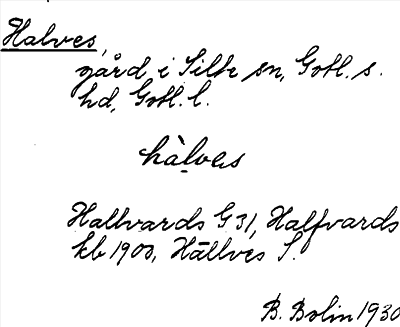 Halves,
gård i Silte sn, Gotl. s.
hd, Gotl. l.
hàlves
Hallvards G 31, Halfvards
kb 1900, Hallves S.
B. Bolin 1930